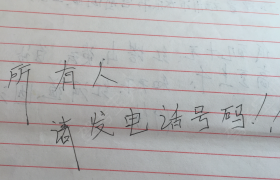 所有人
请发电话号码！！